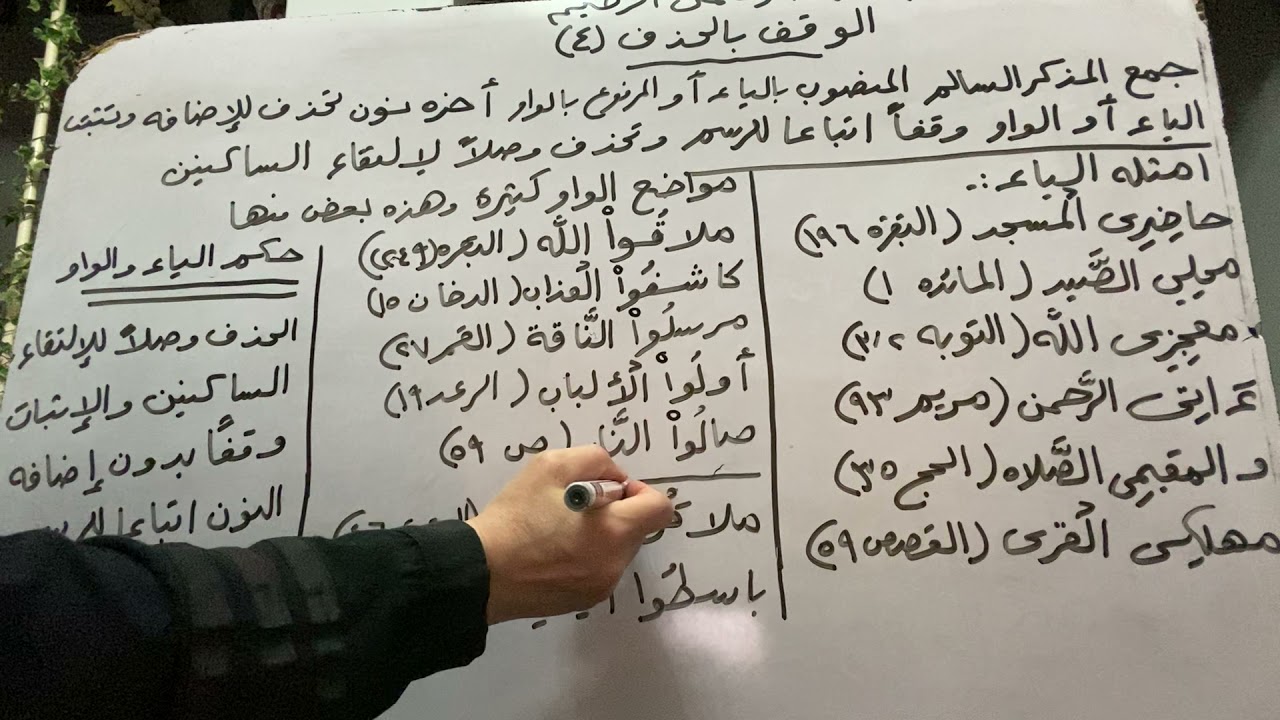 الوقف بالحذف (٤)
جمع المذكر السالم المنصوب بالياء أو المرفوع بالواو أخره نون تحذف للإضافه وتثبت
الياء أو الواو وقفاً اتباعا للرسم وتحذف وصلاً لإلتقاء الساكنين
امثله الياء :-
حاضِرِى الْمسجد (البقره ١٩٦)
محلِي الصَّيد (المائده ١)
معجِزِى اللَّه (التوبه ٣/٢)
ءَاتِى الرَّحمن (مريم ٩٣)
و المقيمِى الصَّلاه (الحج ٣٥)
مهلِكى الْقرى (القصص ٥٩)
مواضع الواو كثيرة وهذه بعض منها
ملاقُواْ اللَّه (البقره ٢٤٩)
كاشفُواْ الْعذاب (الدخان ١٥)
مرسلُواْ النَّاقة (القمر ٢٧)
أولُواْ الْألباب (الرعد ١٩)
صالُواْ النَّار (ص ٥٩)
باسطُوا
حكم الياء والواو
الحذف وصلاً للإلتقاء
الساكنين والإثبات
وقفًا بدون إضافه
النون اتباعا